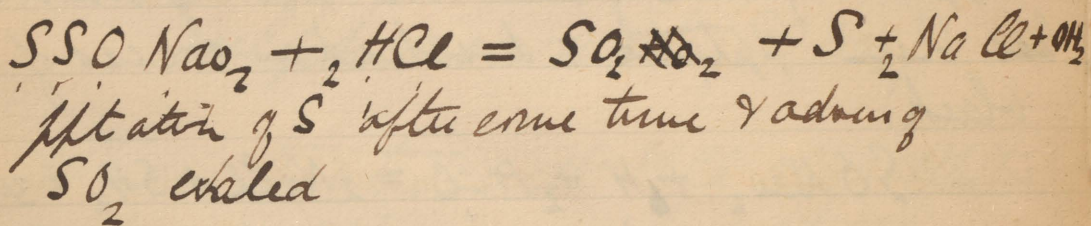 SSO Nao₂ + ₂HCl = SO₂ + S + ₂NaCl + OH₂
pptation of S after some time & odour of
SO₂ exaled